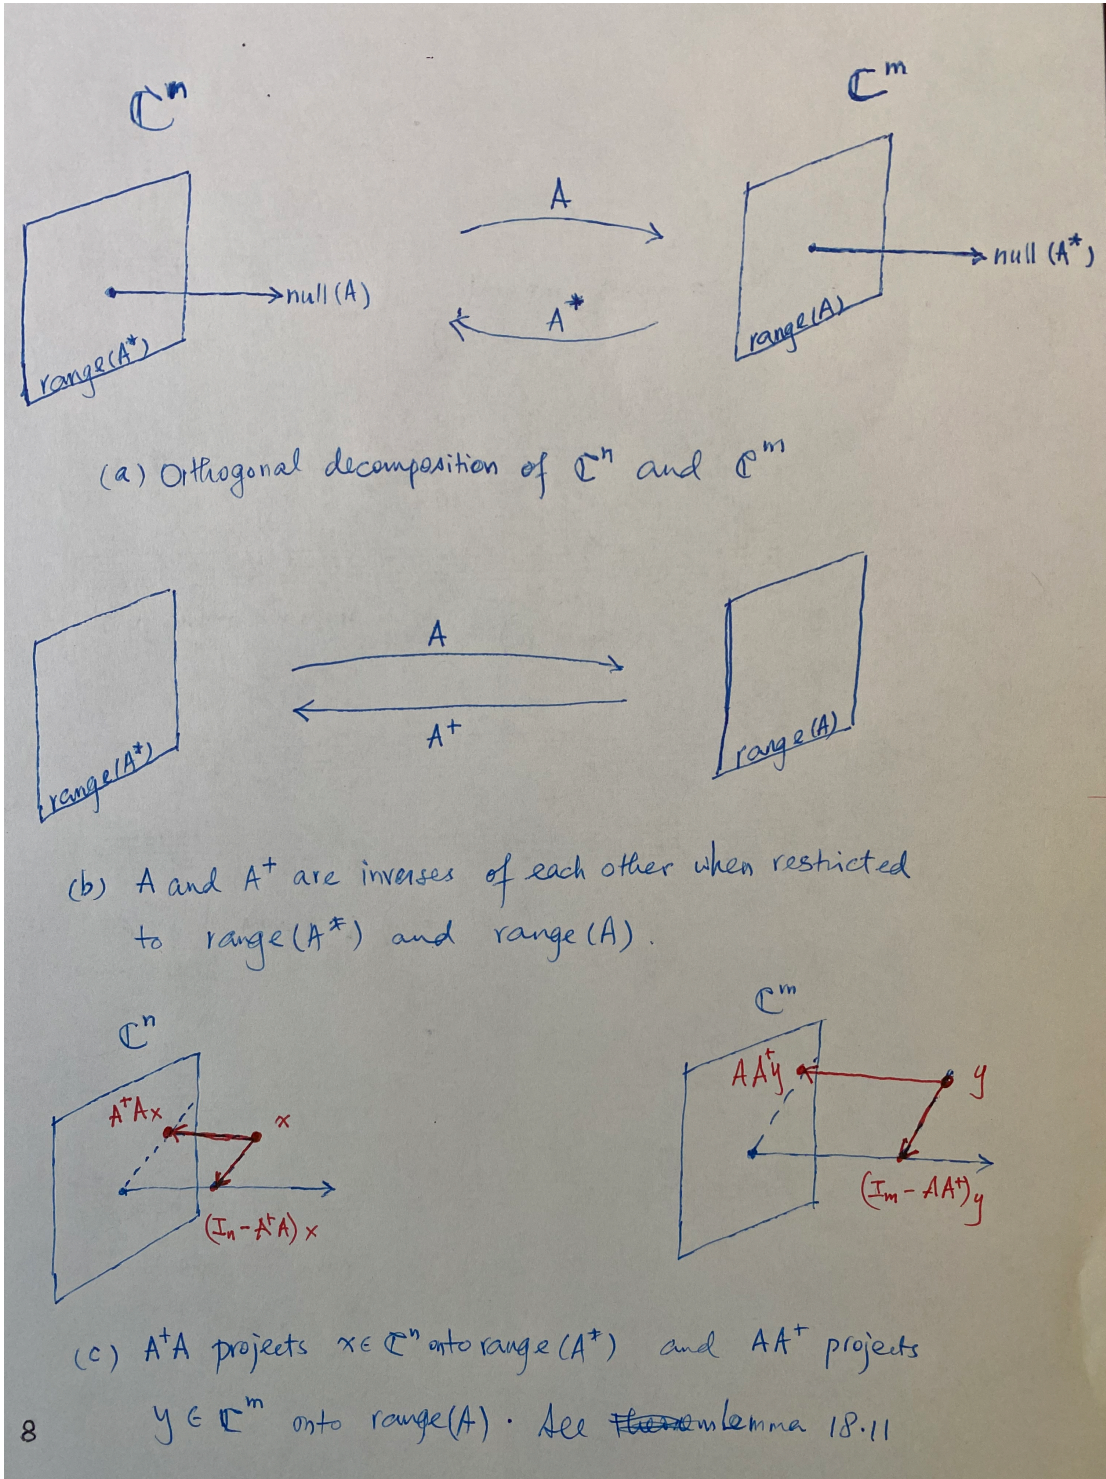 ℂᵐ
ℂᵐ
A
A*
null(A)
null(A*)
range(A*)
range(A)
(a) Orthogonal decomposition of ℂⁿ and ℂᵐ
A
A⁺
range(A*)
range(A)
(b) A and A⁺ are inverses of each other when restricted
to range(A*) and range(A).
ℂⁿ
ℂᵐ
A⁺Ax
x
(Iₙ-A⁺A)x
AA⁺y
y
(Iₘ-AA⁺)y
(c) A⁺A projects x∈ℂⁿ onto range(A*) and AA⁺ projects
y∈ℂᵐ onto range(A). See Lemma 18.11
8